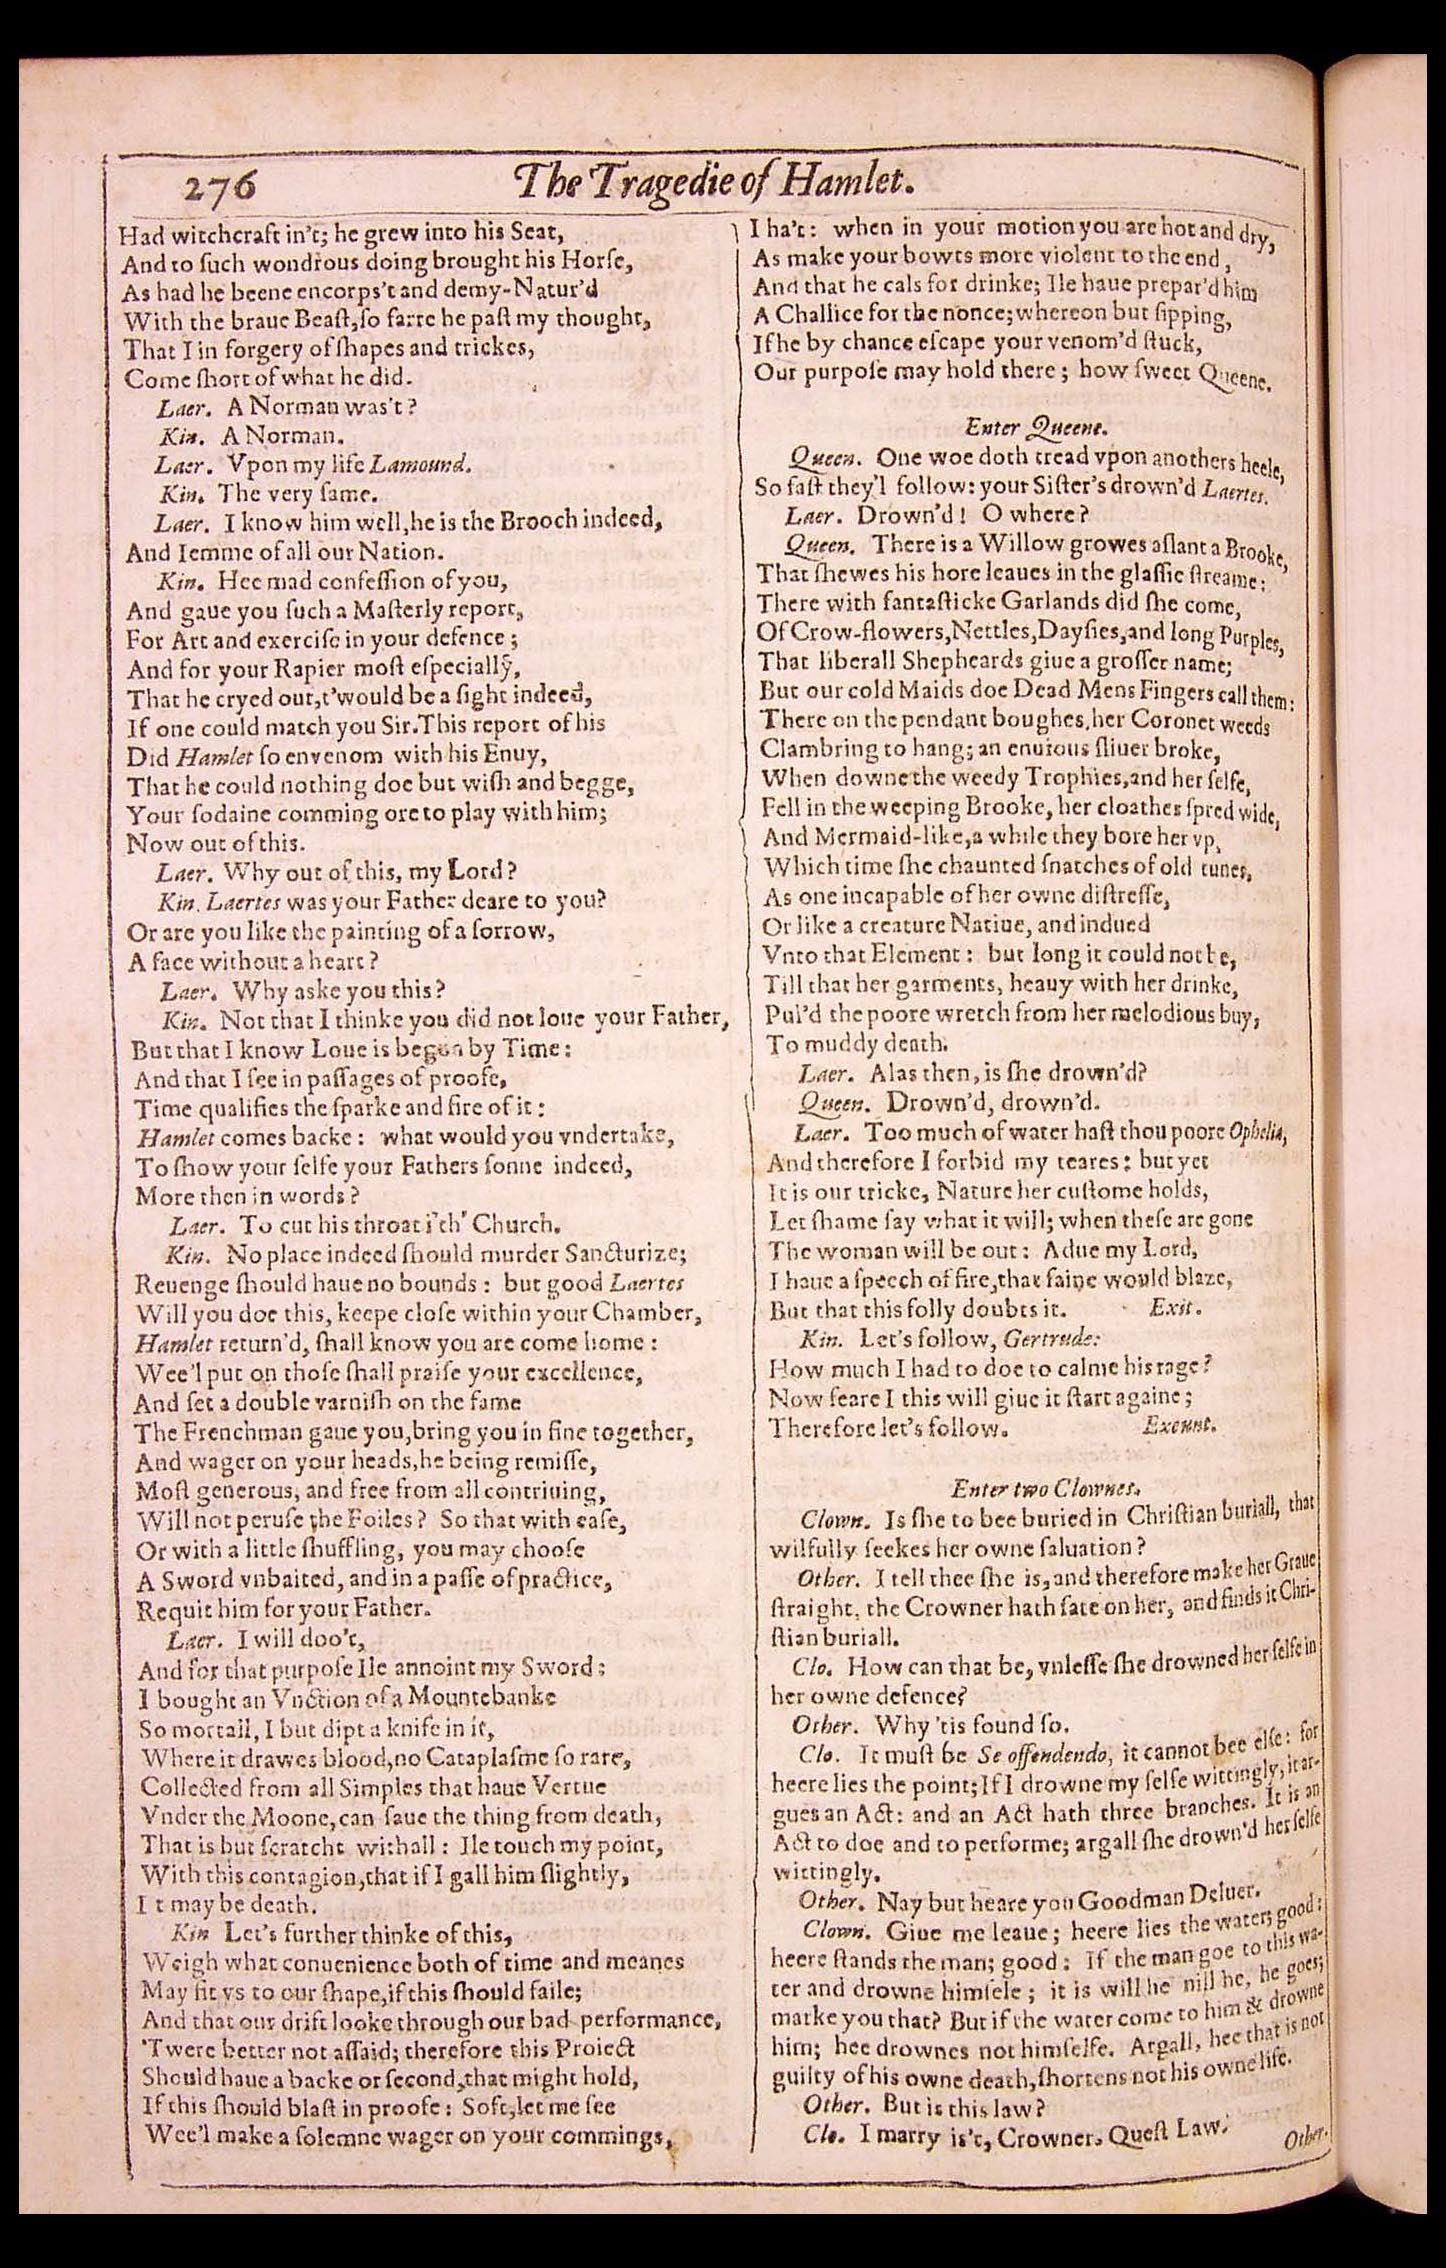 276
The Tragedie of Hamlet.
Had witchcraft in't; he grew into his Seat,
And to ſuch wondrous doing brought his Horſe,
As had he beene encorps't and demy-Natur'd
With the braue Beaſt, ſo farre he paſt my thought,
That I in forgery of ſhapes and trickes,
Come ſhort of what he did.
Laer. A Norman was't?
Kin. A Norman.
Laer. Vpon my life Lamound.
Kin. The very ſame.
Laer. I know him well, he is the Brooch indeed,
And Iemme of all our Nation.
Kin. Hee mad confeſſion of you,
And gaue you ſuch a Maſterly report,
For Art and exerciſe in your defence;
And for your Rapier moſt eſpecially,
That he cryed out, t'would be a ſight indeed,
If one could match you Sir. This report of his
Did Hamlet ſo envenom with his Enuy,
That he could nothing doe but wiſh and begge,
Your ſodaine comming ore to play with him;
Now out of this.
Laer. Why out of this, my Lord?
Kin. Laertes was your Father deare to you?
Or are you like the painting of a ſorrow,
A face without a heart?
Laer. Why aske you this?
Kin. Not that I thinke you did not loue your Father,
But that I know Loue is begun by Time:
And that I ſee in paſſages of proofe,
Time qualifies the ſparke and fire of it:
Hamlet comes backe: what would you vndertake,
To ſhow your ſelfe your Fathers ſonne indeed,
More then in words?
Laer. To cut his throat i'th' Church.
Kin. No place indeed ſhould murder Sancturize;
Reuenge ſhould haue no bounds: but good Laertes
Will you doe this, keepe cloſe within your Chamber,
Hamlet return'd, ſhall know you are come home:
Wee'l put on thoſe ſhall praiſe your excellence,
And ſet a double varniſh on the fame
The Frenchman gaue you, bring you in fine together,
And wager on your heads, he being remiſſe,
Moſt generous, and free from all contriuing,
Will not peruſe the Foiles? So that with eaſe,
Or with a little ſhuffling, you may chooſe
A Sword vnbaited, and in a paſſe of practice,
Requit him for your Father.
Laer. I will doo't,
And for that purpoſe Ile annoint my Sword:
I bought an Vnction of a Mountebanke
So mortall, I but dipt a knife in it,
Where it drawes blood, no Cataplaſme ſo rare,
Collected from all Simples that haue Vertue
Vnder the Moone, can ſaue the thing from death,
That is but ſcratcht withall: Ile touch my point,
With this contagion, that if I gall him ſlightly,
I t may be death.
Kin Let's further thinke of this,
Weigh what conuenience both of time and meanes
May fit vs to our ſhape, if this ſhould faile;
And that our drift looke through our bad performance,
'Twere better not aſſaid; therefore this Proiect
Should haue a backe or ſecond, that might hold,
If this ſhould blaſt in proofe: Soft, let me ſee
Wee'l make a ſolemne wager on your commings,
I ha't: when in your motion you are hot and dry,
As make your bowts more violent to the end,
And that he cals for drinke; Ile haue prepar'd him
A Challice for the nonce; whereon but ſipping,
If he by chance eſcape your venom'd ſtuck,
Our purpoſe may hold there; how ſweet Queene.
Enter Queene.
Queen. One woe doth tread vpon anothers heele,
So faſt they'l follow: your Siſter's drown'd Laertes.
Laer. Drown'd! O where?
Queen. There is a Willow growes aſlant a Brooke,
That ſhewes his hore leaues in the glaſſie ſtreame:
There with fantaſticke Garlands did ſhe come,
Of Crow-flowers, Nettles, Dayſies, and long Purples,
That liberall Shepheards giue a groſſer name;
But our cold Maids doe Dead Mens Fingers call them:
There on the pendant boughes, her Coronet weeds
Clambring to hang; an enuious ſliuer broke,
When downe the weedy Trophies, and her ſelfe,
Fell in the weeping Brooke, her cloathes ſpred wide,
And Mermaid-like, a while they bore her vp,
Which time ſhe chaunted ſnatches of old tunes,
As one incapable of her owne diſtreſſe,
Or like a creature Natiue, and indued
Vnto that Element: but long it could not be,
Till that her garments, heauy with her drinke,
Pul'd the poore wretch from her melodious buy,
To muddy death.
Laer. Alas then, is ſhe drown'd?
Queen. Drown'd, drown'd.
Laer. Too much of water haſt thou poore Ophelia,
And therefore I forbid my teares: but yet
It is our tricke, Nature her cuſtome holds,
Let ſhame ſay what it will; when theſe are gone
The woman will be out: Adue my Lord,
I haue a ſpeech of fire, that faine would blaze,
But that this folly doubts it. Exit.
Kin. Let's follow, Gertrude:
How much I had to doe to calme his rage?
Now feare I this will giue it ſtart againe;
Therefore let's follow. Exeunt.
Enter two Clownes.
Clown. Is ſhe to bee buried in Chriſtian buriall, that
wilfully ſeekes her owne ſaluation?
Other. I tell thee ſhe is, and therefore make her Graue
ſtraight, the Crowner hath ſate on her, and finds it Chri-
ſtian buriall.
Clo. How can that be, vnleſſe ſhe drowned her ſelfe in
her owne defence?
Other. Why 'tis found ſo.
Clo. It muſt be Se offendendo, it cannot bee elſe: for
heere lies the point; If I drowne my ſelfe wittingly, it ar-
gues an Act: and an Act hath three branches. It is an
Act to doe and to performe; argall ſhe drown'd her ſelfe
wittingly.
Other. Nay but heare you Goodman Deluer.
Clown. Giue me leaue; heere lies the water; good:
heere ſtands the man; good: If the man goe to this wa-
ter and drowne himſele; it is will he nill he, he goes;
marke you that? But if the water come to him & drowne
him; hee drownes not himſelfe. Argall, hee that is not
guilty of his owne death, ſhortens not his owne life.
Other. But is this law?
Clo. I marry is't, Crowner. Queſt Law.
Other.